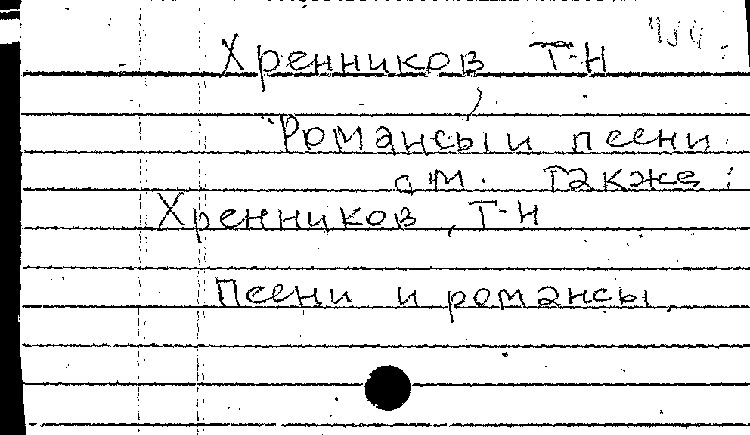 Хренников Т-Н
Романсы и песни
см. также:
Хренников, Т-Н
Песни и романсы